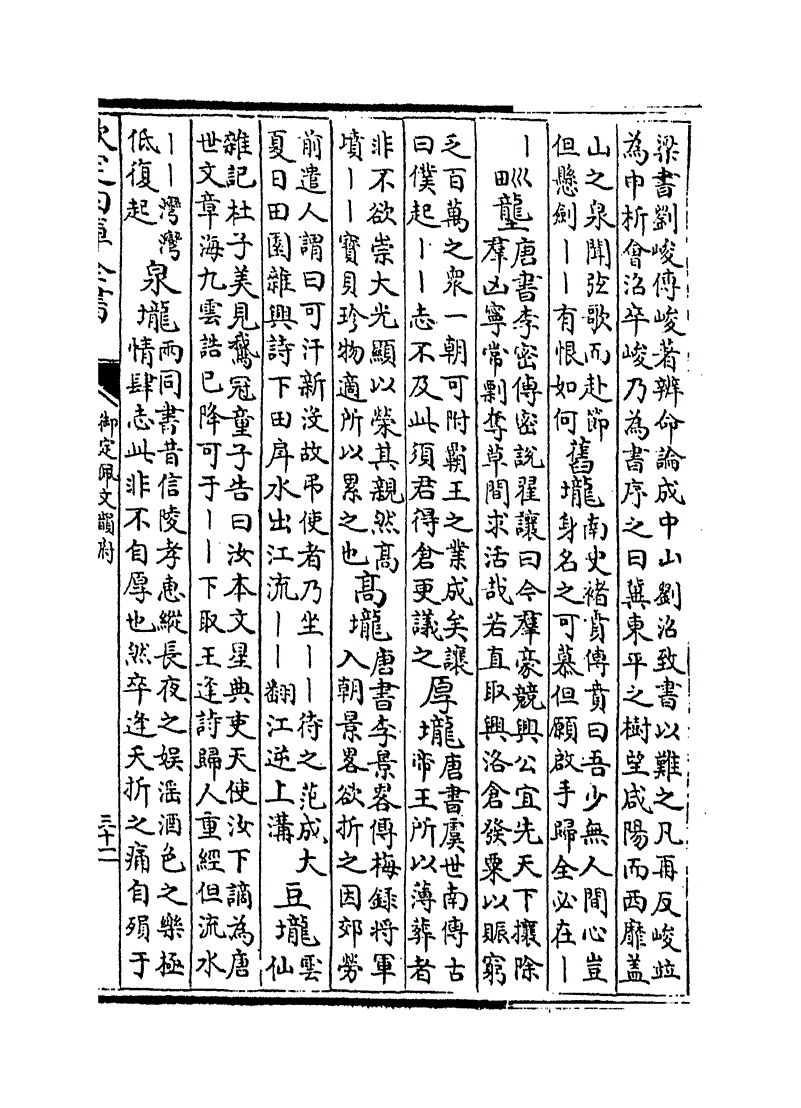 梁書劉峻傳峻著辨命論成中山劉沼致書以難之凡再反峻竝
為申析會沼卒峻乃為書序之曰冀東平之樹望咸陽而西靡蓋
山之泉聞弦歌而赴節
但懸劍丨丨有恨如何
舊壠
南史褚賁傳賁曰吾少無人間心豈
身名之可慕但願啟手歸全必在丨
丨巛
田
壟
唐書李密傳密說翟讓曰今羣豪競興公宜先天下攘除
羣凶寧常剽奪草間求活哉若直取興洛倉發粟以賑窮
乏百萬之衆一朝可附霸王之業成矣讓
曰僕起丨丨志不及此須君得倉更議之
厚壠
唐書虞世南傳古
帝王所以薄葬者
非不欲崇大光顯以榮其親然高
墳丨丨寶貝珍物適所以累之也
高壠
唐書李景畧傳梅録將軍
入朝景畧欲折之因郊勞
前遣人謂曰可汗新沒故吊使者乃坐丨丨待之范成大
夏日田園雜興詩下田戽水出江流丨丨翻江逆上溝
豆壠
雲
仙
雜記杜子美見鵞冠童子告曰汝本文星典吏天使汝下謫為唐
世文章海九雲誥已降可于丨丨下取王逢詩歸人重經但流水
丨丨灣灣
低復起
泉壠
兩同書昔信陵孝惠縱長夜之娱滛酒色之樂極
情肆志此非不自厚也然卒逢夭折之痛自殞于
欽定四庫全書
御定佩文韻府
三十二